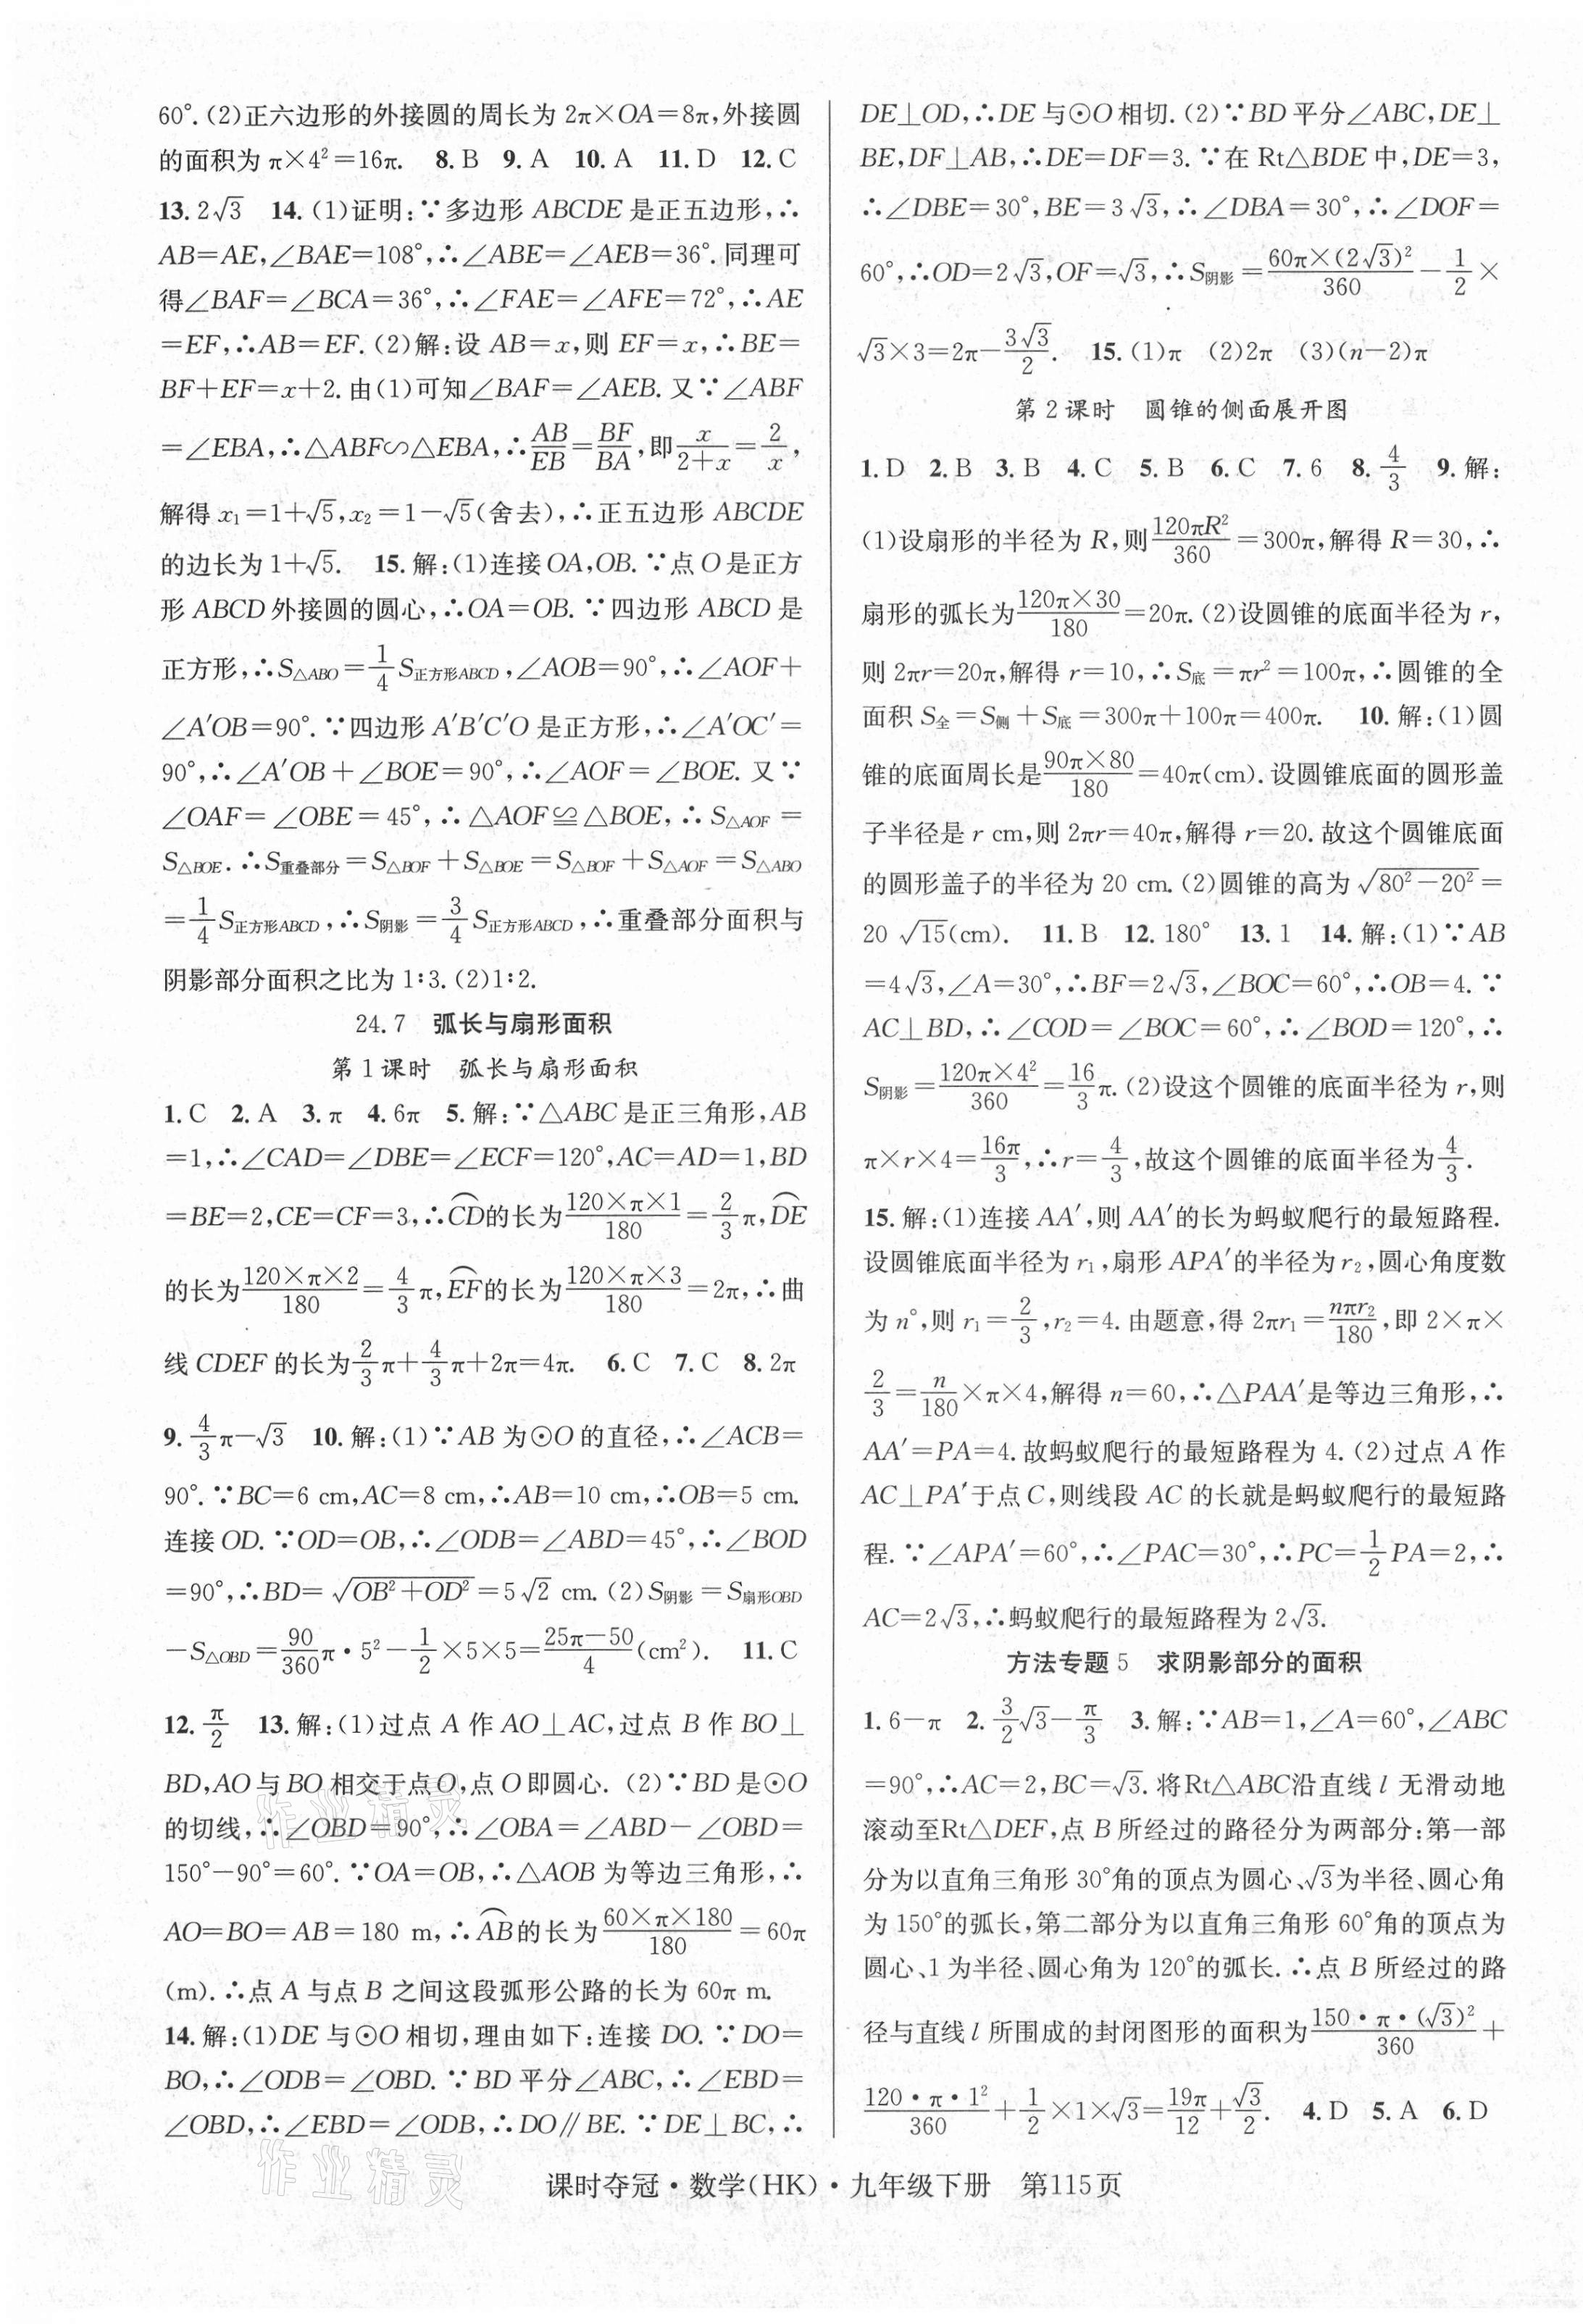 60°. (2)正六边形的外接圆的周长为 2π×OA=8π,外接圆
的面积为 π×4²=16π. 8. B 9. A 10. A 11. D 12. C
13. 2√3 14. (1)证明:∵多边形 ABCDE 是正五边形,∴
AB=AE,∠BAE=108°,∴∠ABE=∠AEB=36°. 同理可
得∠BAF=∠BCA=36°,∴∠FAE=∠AFE=72°,∴AE
=EF,∴AB=EF. (2)解:设 AB=x,则 EF=x,∴BE=
BF+EF=x+2. 由(1)可知∠BAF=∠AEB. 又∵∠ABF
=∠EBA,∴△ABF∽△EBA,∴AB/EB=BF/BA,即x/(2+x)=2/x,
解得 x₁=1+√5,x₂=1-√5(舍去),∴正五边形 ABCDE
的边长为 1+√5. 15. 解:(1)连接 OA,OB. ∵点 O 是正方
形 ABCD 外接圆的圆心,∴OA=OB. ∵四边形 ABCD 是
正方形,∴S△ABO=1/4 S正方形ABCD,∠AOB=90°,∴∠AOF+
∠A′OB=90°. ∵四边形 A′B′C′O 是正方形,∴∠A′OC′=
90°,∴∠A′OB+∠BOE=90°,∴∠AOF=∠BOE. 又∵
∠OAF=∠OBE=45°,∴△AOF≌△BOE,∴S△AOF=
S△BOE. ∴S重叠部分=S△BOF+S△BOE=S△BOF+S△AOF=S△ABO
=1/4 S正方形ABCD,∴S阴影=3/4 S正方形ABCD,∴重叠部分面积与
阴影部分面积之比为 1∶3. (2)1∶2.
24.7 弧长与扇形面积
第 1 课时 弧长与扇形面积
1. C 2. A 3. π 4. 6π 5. 解:∵△ABC 是正三角形,AB
=1,∴∠CAD=∠DBE=∠ECF=120°,AC=AD=1,BD
=BE=2,CE=CF=3,∴⌒CD的长为(120×π×1)/180=2/3 π,⌒DE
的长为(120×π×2)/180=4/3 π,⌒EF的长为(120×π×3)/180=2π,∴曲
线 CDEF 的长为2/3 π+4/3 π+2π=4π. 6. C 7. C 8. 2π
9. 4/3 π-√3 10. 解:(1)∵AB 为⊙O 的直径,∴∠ACB=
90°. ∵BC=6 cm,AC=8 cm,∴AB=10 cm,∴OB=5 cm.
连接 OD. ∵OD=OB,∴∠ODB=∠ABD=45°,∴∠BOD
=90°,∴BD=√(OB²+OD²)=5√2 cm. (2)S阴影=S扇形OBD
-S△OBD=90/360 π·5²-1/2×5×5=(25π-50)/4(cm²). 11. C
12. π/2 13. 解:(1)过点 A 作 AO⊥AC,过点 B 作 BO⊥
BD,AO 与 BO 相交于点 O,点 O 即圆心. (2)∵BD 是⊙O
的切线,∴∠OBD=90°,∴∠OBA=∠ABD-∠OBD=
150°-90°=60°. ∵OA=OB,∴△AOB 为等边三角形,∴
AO=BO=AB=180 m,∴⌒AB的长为(60×π×180)/180=60π
(m). ∴点 A 与点 B 之间这段弧形公路的长为 60π m.
14. 解:(1)DE 与⊙O 相切,理由如下:连接 DO. ∵DO=
BO,∴∠ODB=∠OBD. ∵BD 平分∠ABC,∴∠EBD=
∠OBD,∴∠EBD=∠ODB,∴DO∥BE. ∵DE⊥BC,∴
DE⊥OD,∴DE 与⊙O 相切. (2)∵BD 平分∠ABC,DE⊥
BE,DF⊥AB,∴DE=DF=3. ∵在 Rt△BDE 中,DE=3,
∴∠DBE=30°,BE=3√3,∴∠DBA=30°,∴∠DOF=
60°,∴OD=2√3,OF=√3,∴S阴影=(60π×(2√3)²)/360-1/2×
√3×3=2π-(3√3)/2. 15. (1)π (2)2π (3)(n-2)π
第 2 课时 圆锥的侧面展开图
1. D 2. B 3. B 4. C 5. B 6. C 7. 6 8. 4/3 9. 解:
(1)设扇形的半径为 R,则(120πR²)/360=300π,解得 R=30,∴
扇形的弧长为(120π×30)/180=20π. (2)设圆锥的底面半径为 r,
则 2πr=20π,解得 r=10,∴S底=πr²=100π,∴圆锥的全
面积 S全=S侧+S底=300π+100π=400π. 10. 解:(1)圆
锥的底面周长是(90π×80)/180=40π(cm). 设圆锥底面的圆形盖
子半径是 r cm,则 2πr=40π,解得 r=20. 故这个圆锥底面
的圆形盖子的半径为 20 cm. (2)圆锥的高为 √(80²-20²)=
20 √15(cm). 11. B 12. 180° 13. 1 14. 解:(1)∵AB
=4√3,∠A=30°,∴BF=2√3,∠BOC=60°,∴OB=4. ∵
AC⊥BD,∴∠COD=∠BOC=60°,∴∠BOD=120°,∴
S阴影=(120π×4²)/360=16/3 π. (2)设这个圆锥的底面半径为 r,则
π×r×4=16π/3,∴r=4/3,故这个圆锥的底面半径为4/3.
15. 解:(1)连接 AA′,则 AA′的长为蚂蚁爬行的最短路程.
设圆锥底面半径为 r₁,扇形 APA′的半径为 r₂,圆心角度数
为 n°,则 r₁=2/3,r₂=4. 由题意,得 2πr₁=(nπr₂)/180,即 2×π×
2/3=n/180×π×4,解得 n=60,∴△PAA′是等边三角形,∴
AA′=PA=4. 故蚂蚁爬行的最短路程为 4. (2)过点 A 作
AC⊥PA′于点 C,则线段 AC 的长就是蚂蚁爬行的最短路
程. ∵∠APA′=60°,∴∠PAC=30°,∴PC=1/2 PA=2,∴
AC=2√3,∴蚂蚁爬行的最短路程为 2√3.
方法专题 5 求阴影部分的面积
1. 6-π 2. 3/2 √3-π/3 3. 解:∵AB=1,∠A=60°,∠ABC
=90°,∴AC=2,BC=√3. 将Rt△ABC沿直线 l 无滑动地
滚动至Rt△DEF,点 B 所经过的路径分为两部分:第一部
分为以直角三角形 30°角的顶点为圆心、√3为半径、圆心角
为 150°的弧长,第二部分为以直角三角形 60°角的顶点为
圆心、1 为半径、圆心角为 120°的弧长. ∴点 B 所经过的路
径与直线 l 所围成的封闭图形的面积为(150·π·(√3)²)/360+
(120·π·1²)/360+1/2×1×√3=19π/12+√3/2. 4. D 5. A 6. D
课时夺冠·数学(HK)·九年级下册 第115页
作业精灵
作业精灵